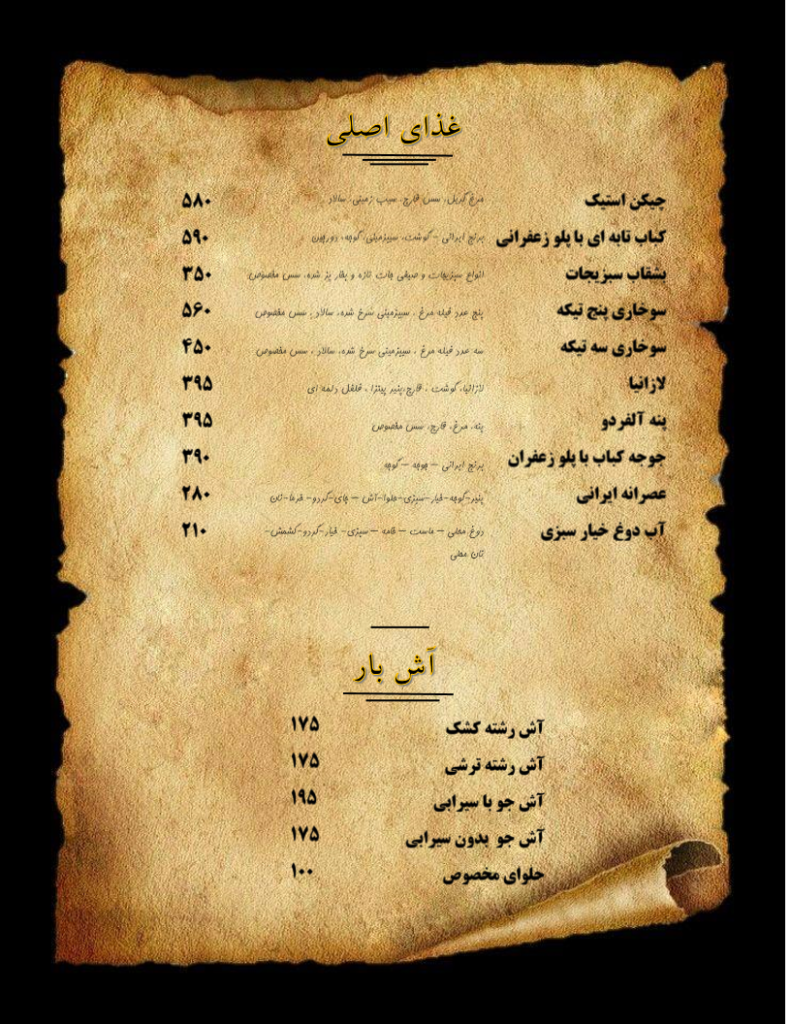 غذای اصلی
چیکن استیک مرغ گریل، سس قارچ، سیب زمینی، سالاد ۵۸۰
کباب تابه ای با پلو زعفرانی برنج ایرانی - گوشت، سیبزمینی، گوجه، دورچین ۵۹۰
بشقاب سبزیجات انواع سبزیجات و صیفی جات تازه و بخار پز شده، سس مخصوص ۳۵۰
سوخاری پنج تیکه پنج عدد فیله مرغ ، سیبزمینی سرخ شده، سالاد ، سس مخصوص ۵۶۰
سوخاری سه تیکه سه عدد فیله مرغ ، سیبزمینی سرخ شده، سالاد ، سس مخصوص ۴۵۰
لازانیا لازانیا، گوشت ، قارچ، پنیر پیتزا ، فلفل دلمه ای ۳۹۵
پنه آلفردو پنه، مرغ، قارچ، سس مخصوص ۳۹۵
جوجه کباب با پلو زعفران برنج ایرانی – جوجه – گوجه ۳۹۰
عصرانه ایرانی پنیر-گوجه-خیار-سبزی-حلوا-آش – چای-گردو- خرما-نان ۲۸۰
آب دوغ خیار سبزی دوغ محلی – ماست – – سبزی- خیار-گردو-کشمش- ۲۱۰
نان محلی
آش بار
آش رشته کشک ۱۷۵
آش رشته ترشی ۱۷۵
آش جو با سیرابی ۱۹۵
آش جو بدون سیرابی ۱۷۵
حلوای مخصوص ۱۰۰